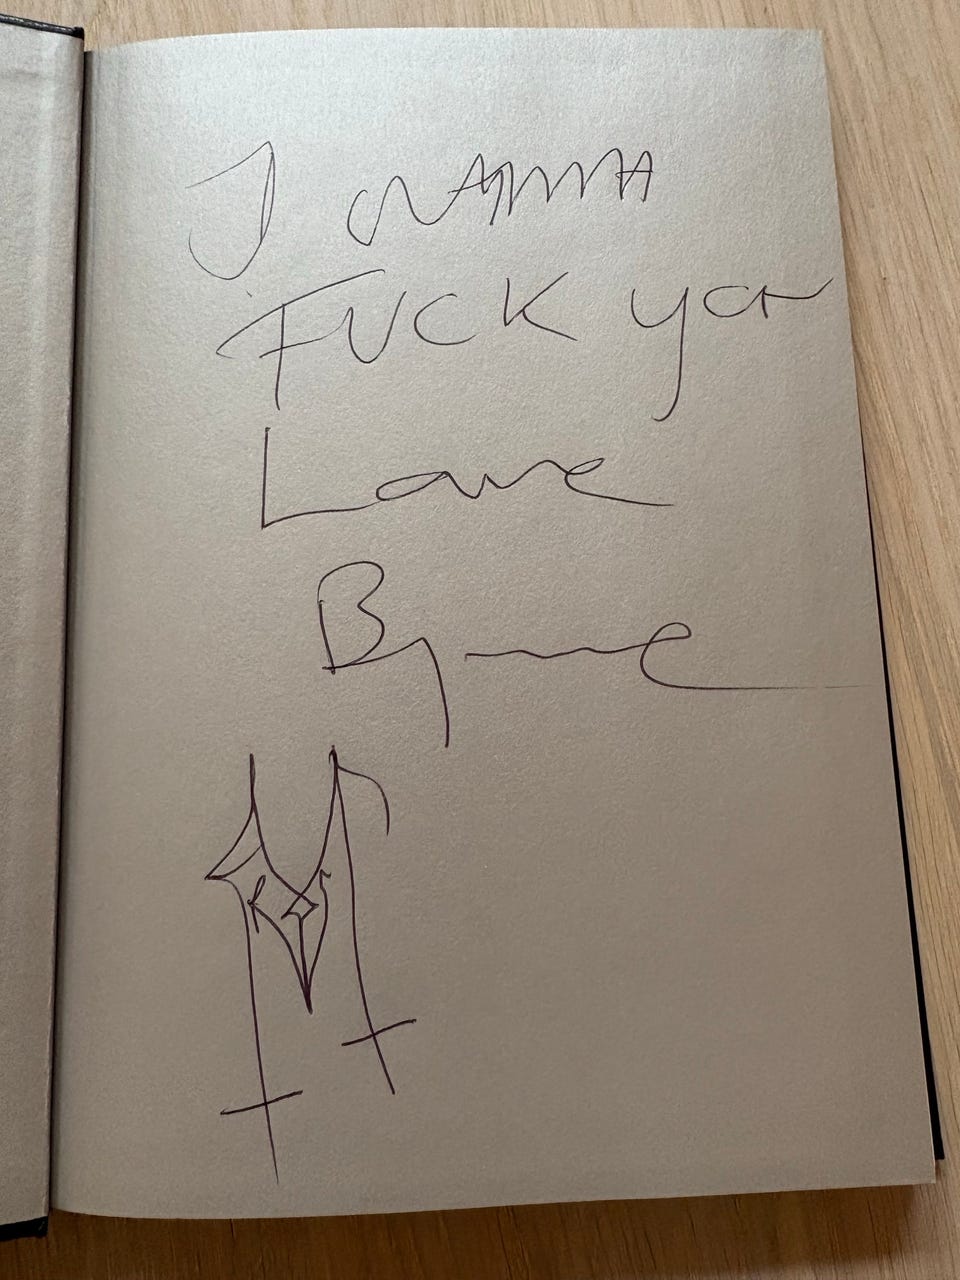 I wanna
FUCK you
Love
Byrne